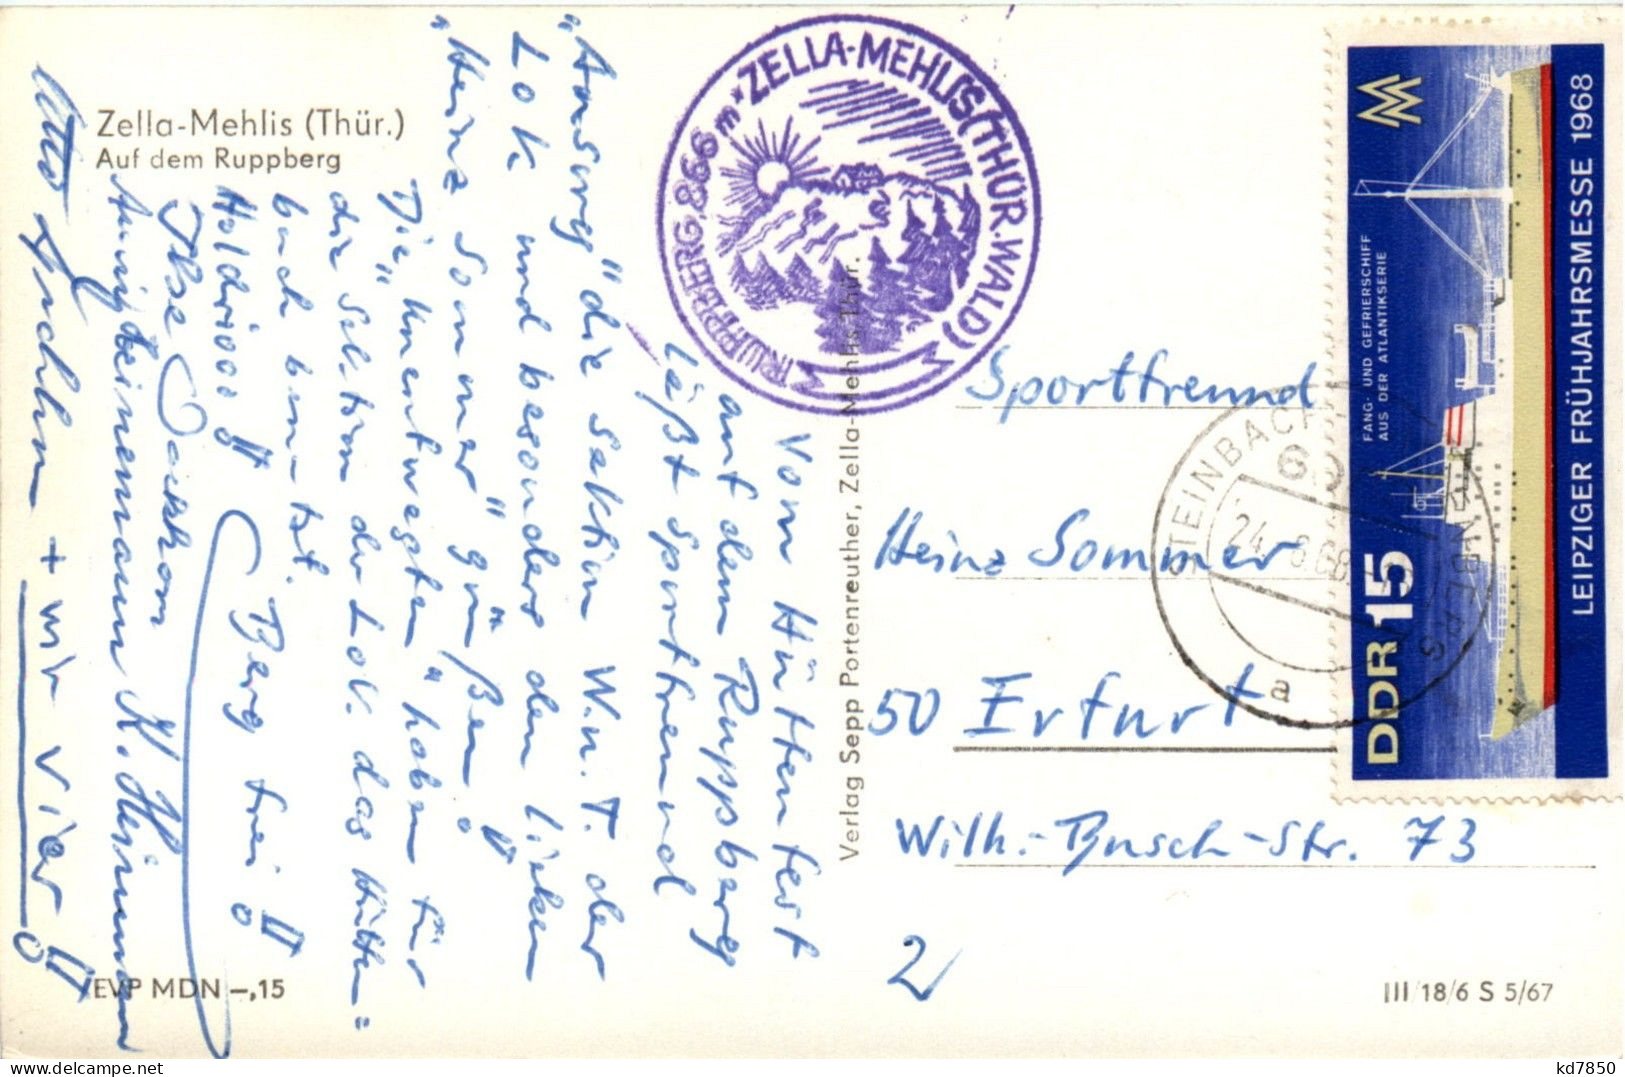 Zella-Mehlis (Thür.)
Auf dem Ruppberg
RUPPBERG 866 m * ZELLA-MEHLIS (THÜR. WALD)
Vom Hüttenfest
auf dem Ruppberg
läßt Sportfreund
"die Sektion W.u.T. der
Lok und besonders den lieben
"Heinz Sommer" grüßen!
Die "Unentwegten" haben für
die Sektion der Lok. das Hütten=
buch benutzt. Berg frei!
Holdrioo!
Ilse
+ wir vier!
Verlag Sepp Portenreuther, Zella-Mehlis Thür.
Sportfreund
Heinz Sommer
50 Erfurt
Wilh.-Busch-Str. 73
2
EVP MDN –,15
III/18/6 S 5/67
STEINBACH-
24. 6.68
a
MM
FANG- UND GEFRIERSCHIFF
AUS DER ATLANTIKSERIE
LEIPZIGER FRÜHJAHRSMESSE 1968
DDR 15
delcampe.net
kd7850